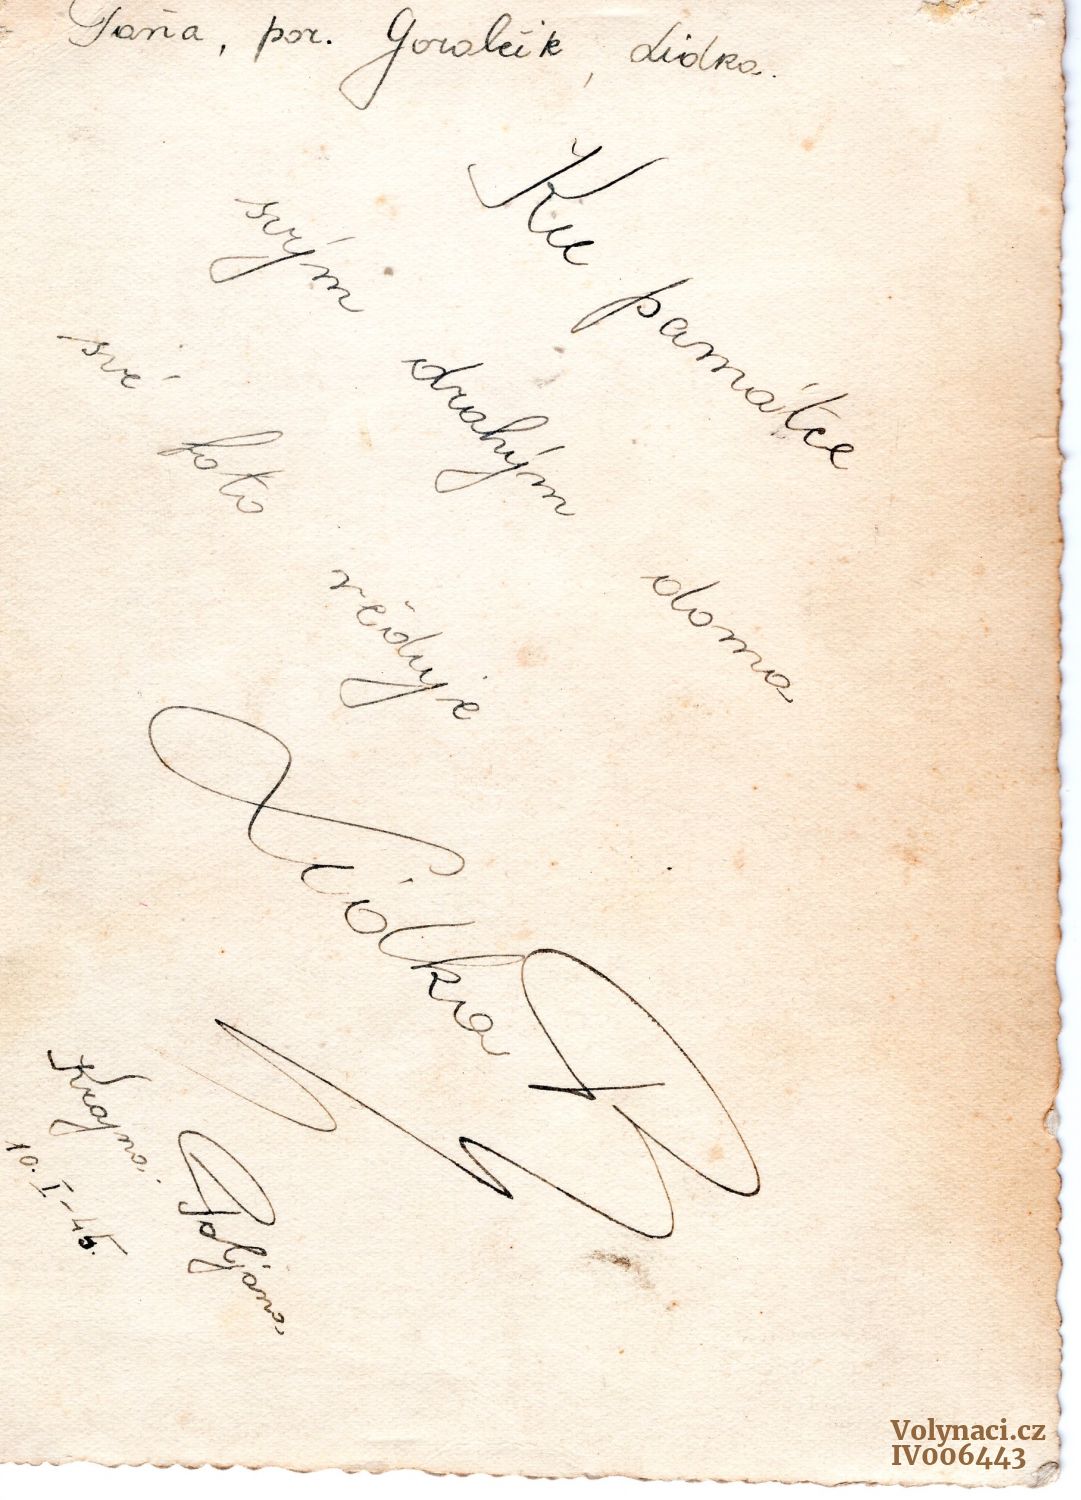 Táňa, por. Goralčik, Lidka.
Ku památce
svým drahým doma
své foto věduje
Lidka B
Krajná Poljána
10. I - 45.
Volynaci.cz
IV006443